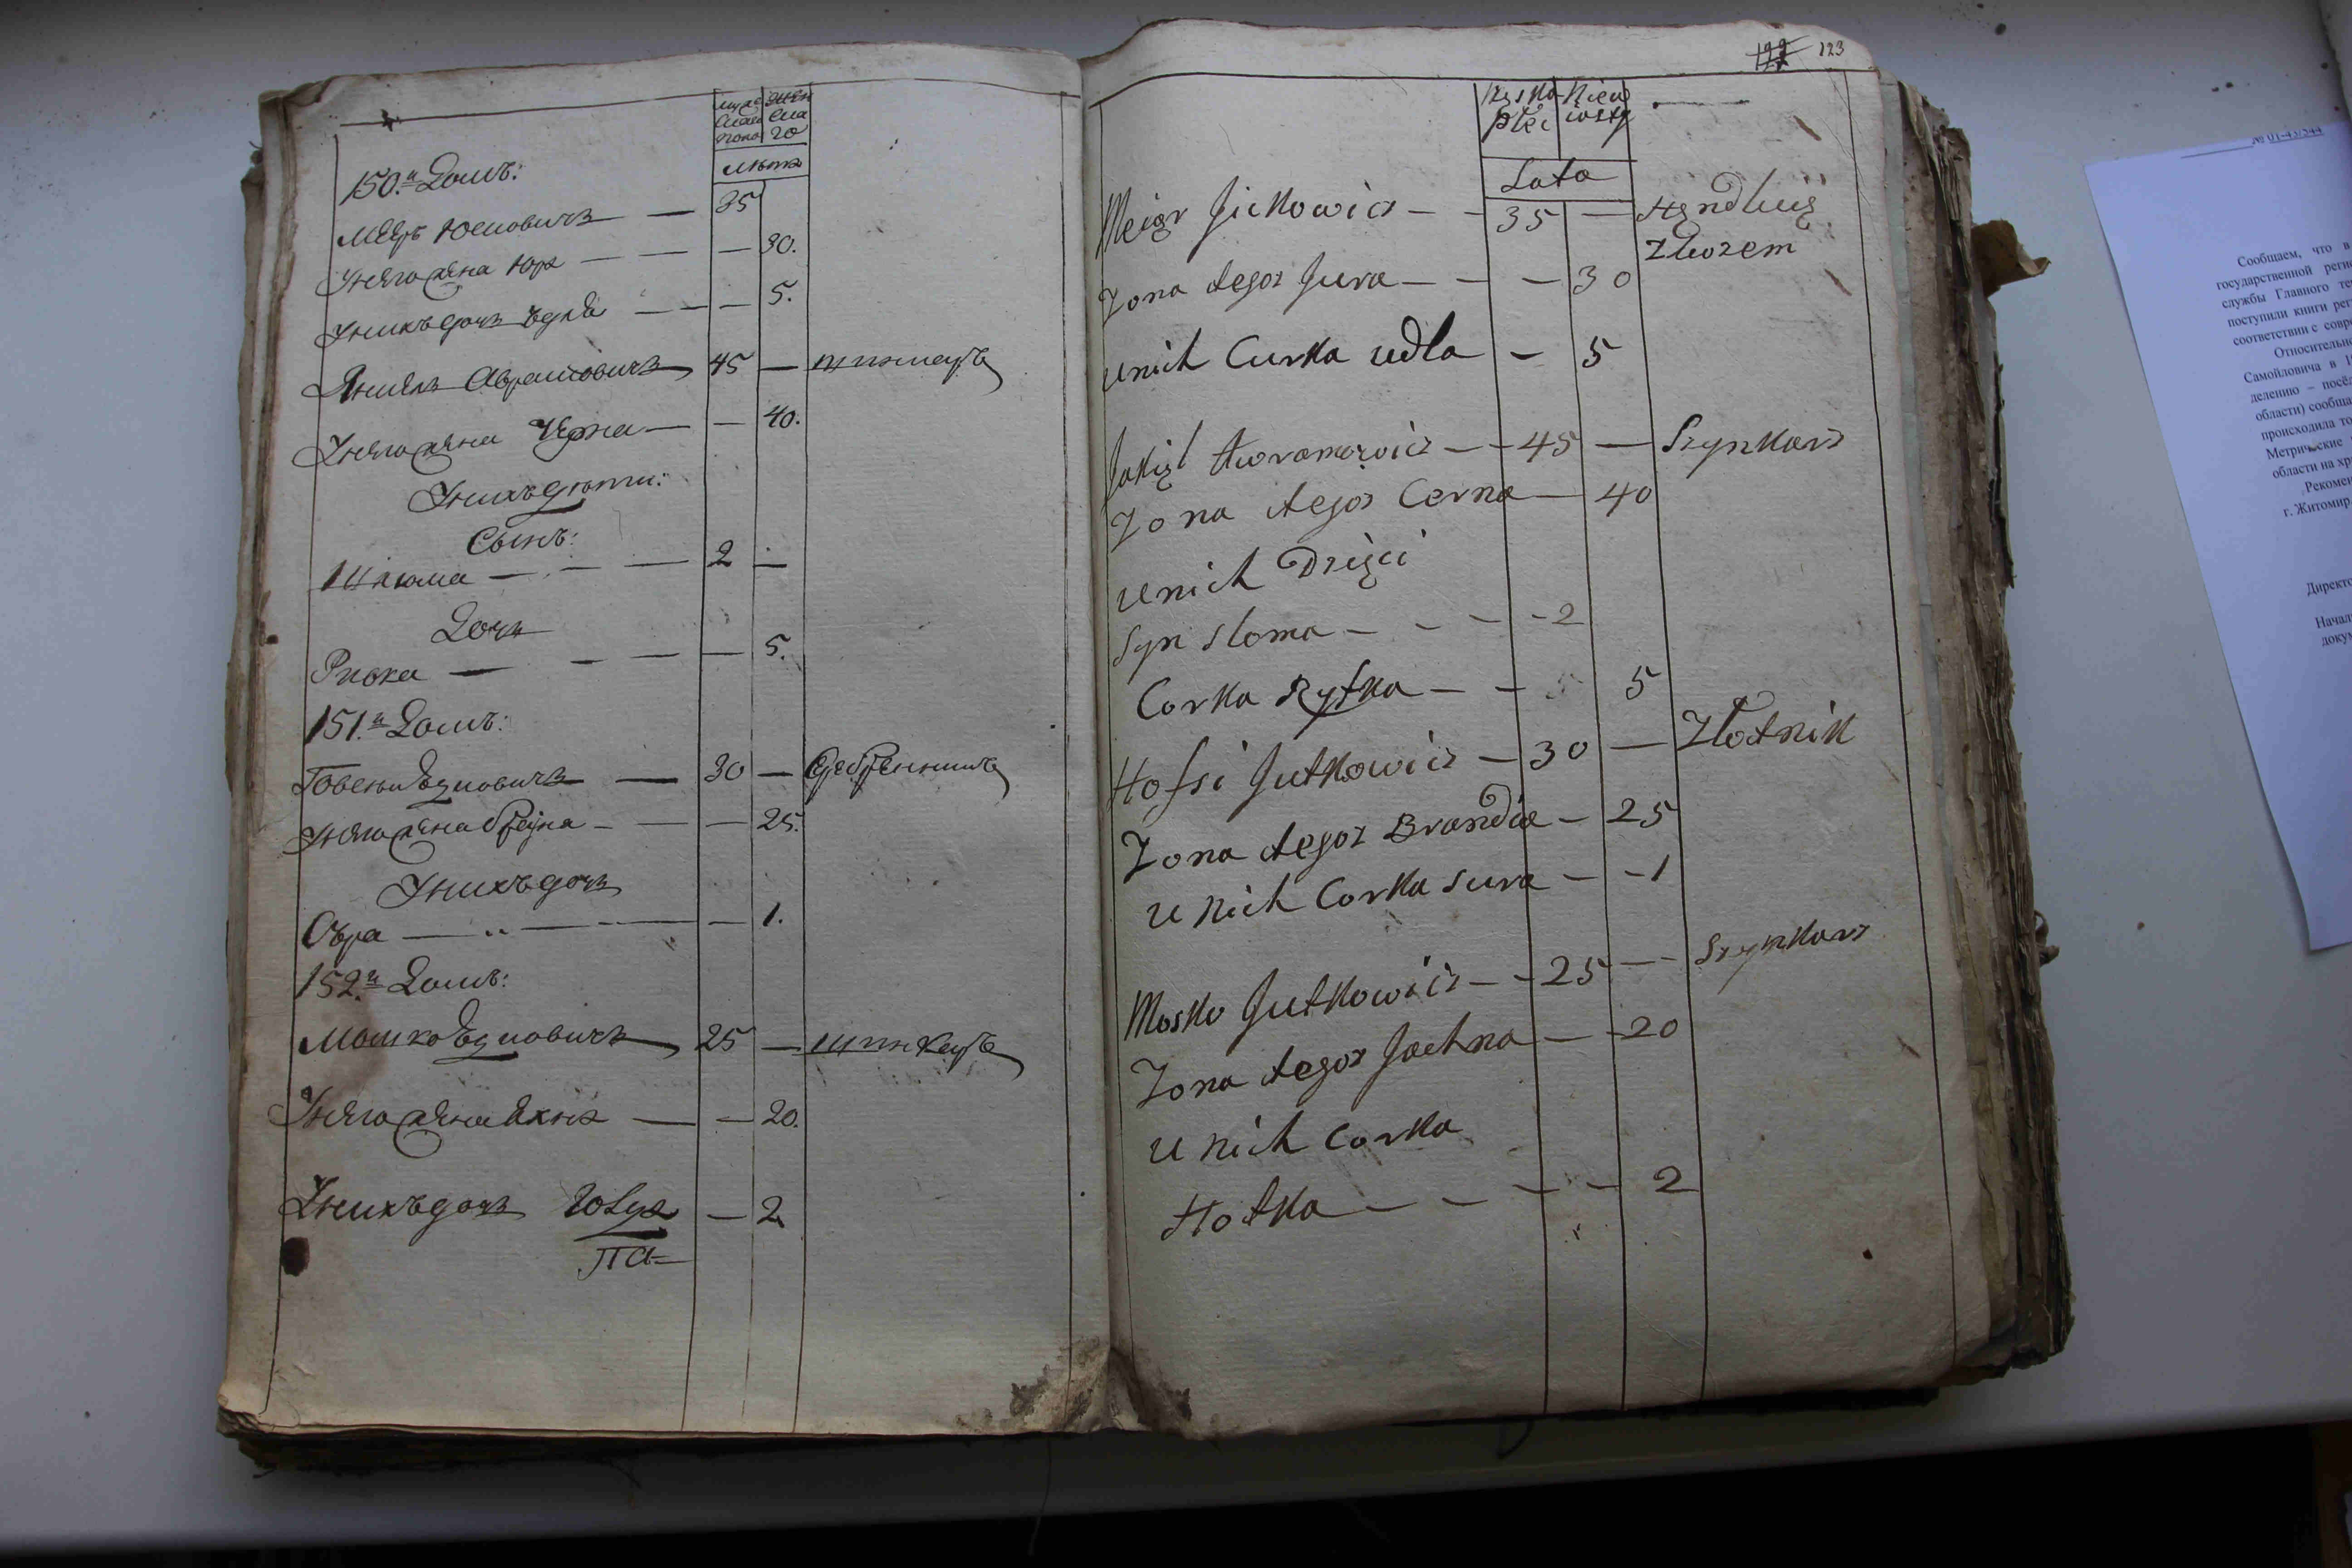 лѣта
150.й Домъ:
Мееръ Юсиовичъ — 35
Унего жена Юра — — — 30.
Унихъ дочь Ъдля — — — 5.
Янкель Абрамовичъ 45 — шинкаръ
Унего жена Черна — — 40.
Унихъ дѣти:
Сынъ:
Шлюма — — — 2 —
Дочь
Ривка — — — — 5.
151.й Домъ:
30 — Серебренникъ
Унего жена Брейна — — — 25.
Унихъ дочь
Сѣра — — — — 1.
152.й Домъ:
Мошко 25 — шинкаръ
Унего жена Яхна — — 20.
Унихъ дочь — 2
па-
122 123
Męska Niew
płei iasty
Lata
Meięr Jickowicz — — 35 — Hęndluię
Zbozem
Zona tegoz Jura — — — 30
unich Curka udla — 5
Jakięl Awramowicz — — 45 — Szynkarz
Zona tegoz Cerna — 40
unich Dzięci
Syn Sloma — — — — 2
Corka Ryfka — — 5
Hofsi Jutkowicz — 30 — Złotnik
Zona tegoz Brandla — 25
u nich Corka Sura — — 1
Mosko Jutkowicz — — 25 — Szynkarz
Zona tegoz Jachna — — 20
u nich Corka
Hotka — — — — 2
№ 01-43/544
Сообщаем, что в
государственной реги
службы Главного те
поступили книги рег
соответствии с совр
Относительн
Самойловича в 1
делению – посёл
области) сообща
происходила то
Метрические
области на хр
Рекомен
г. Житомир
Директо
Начал
докум